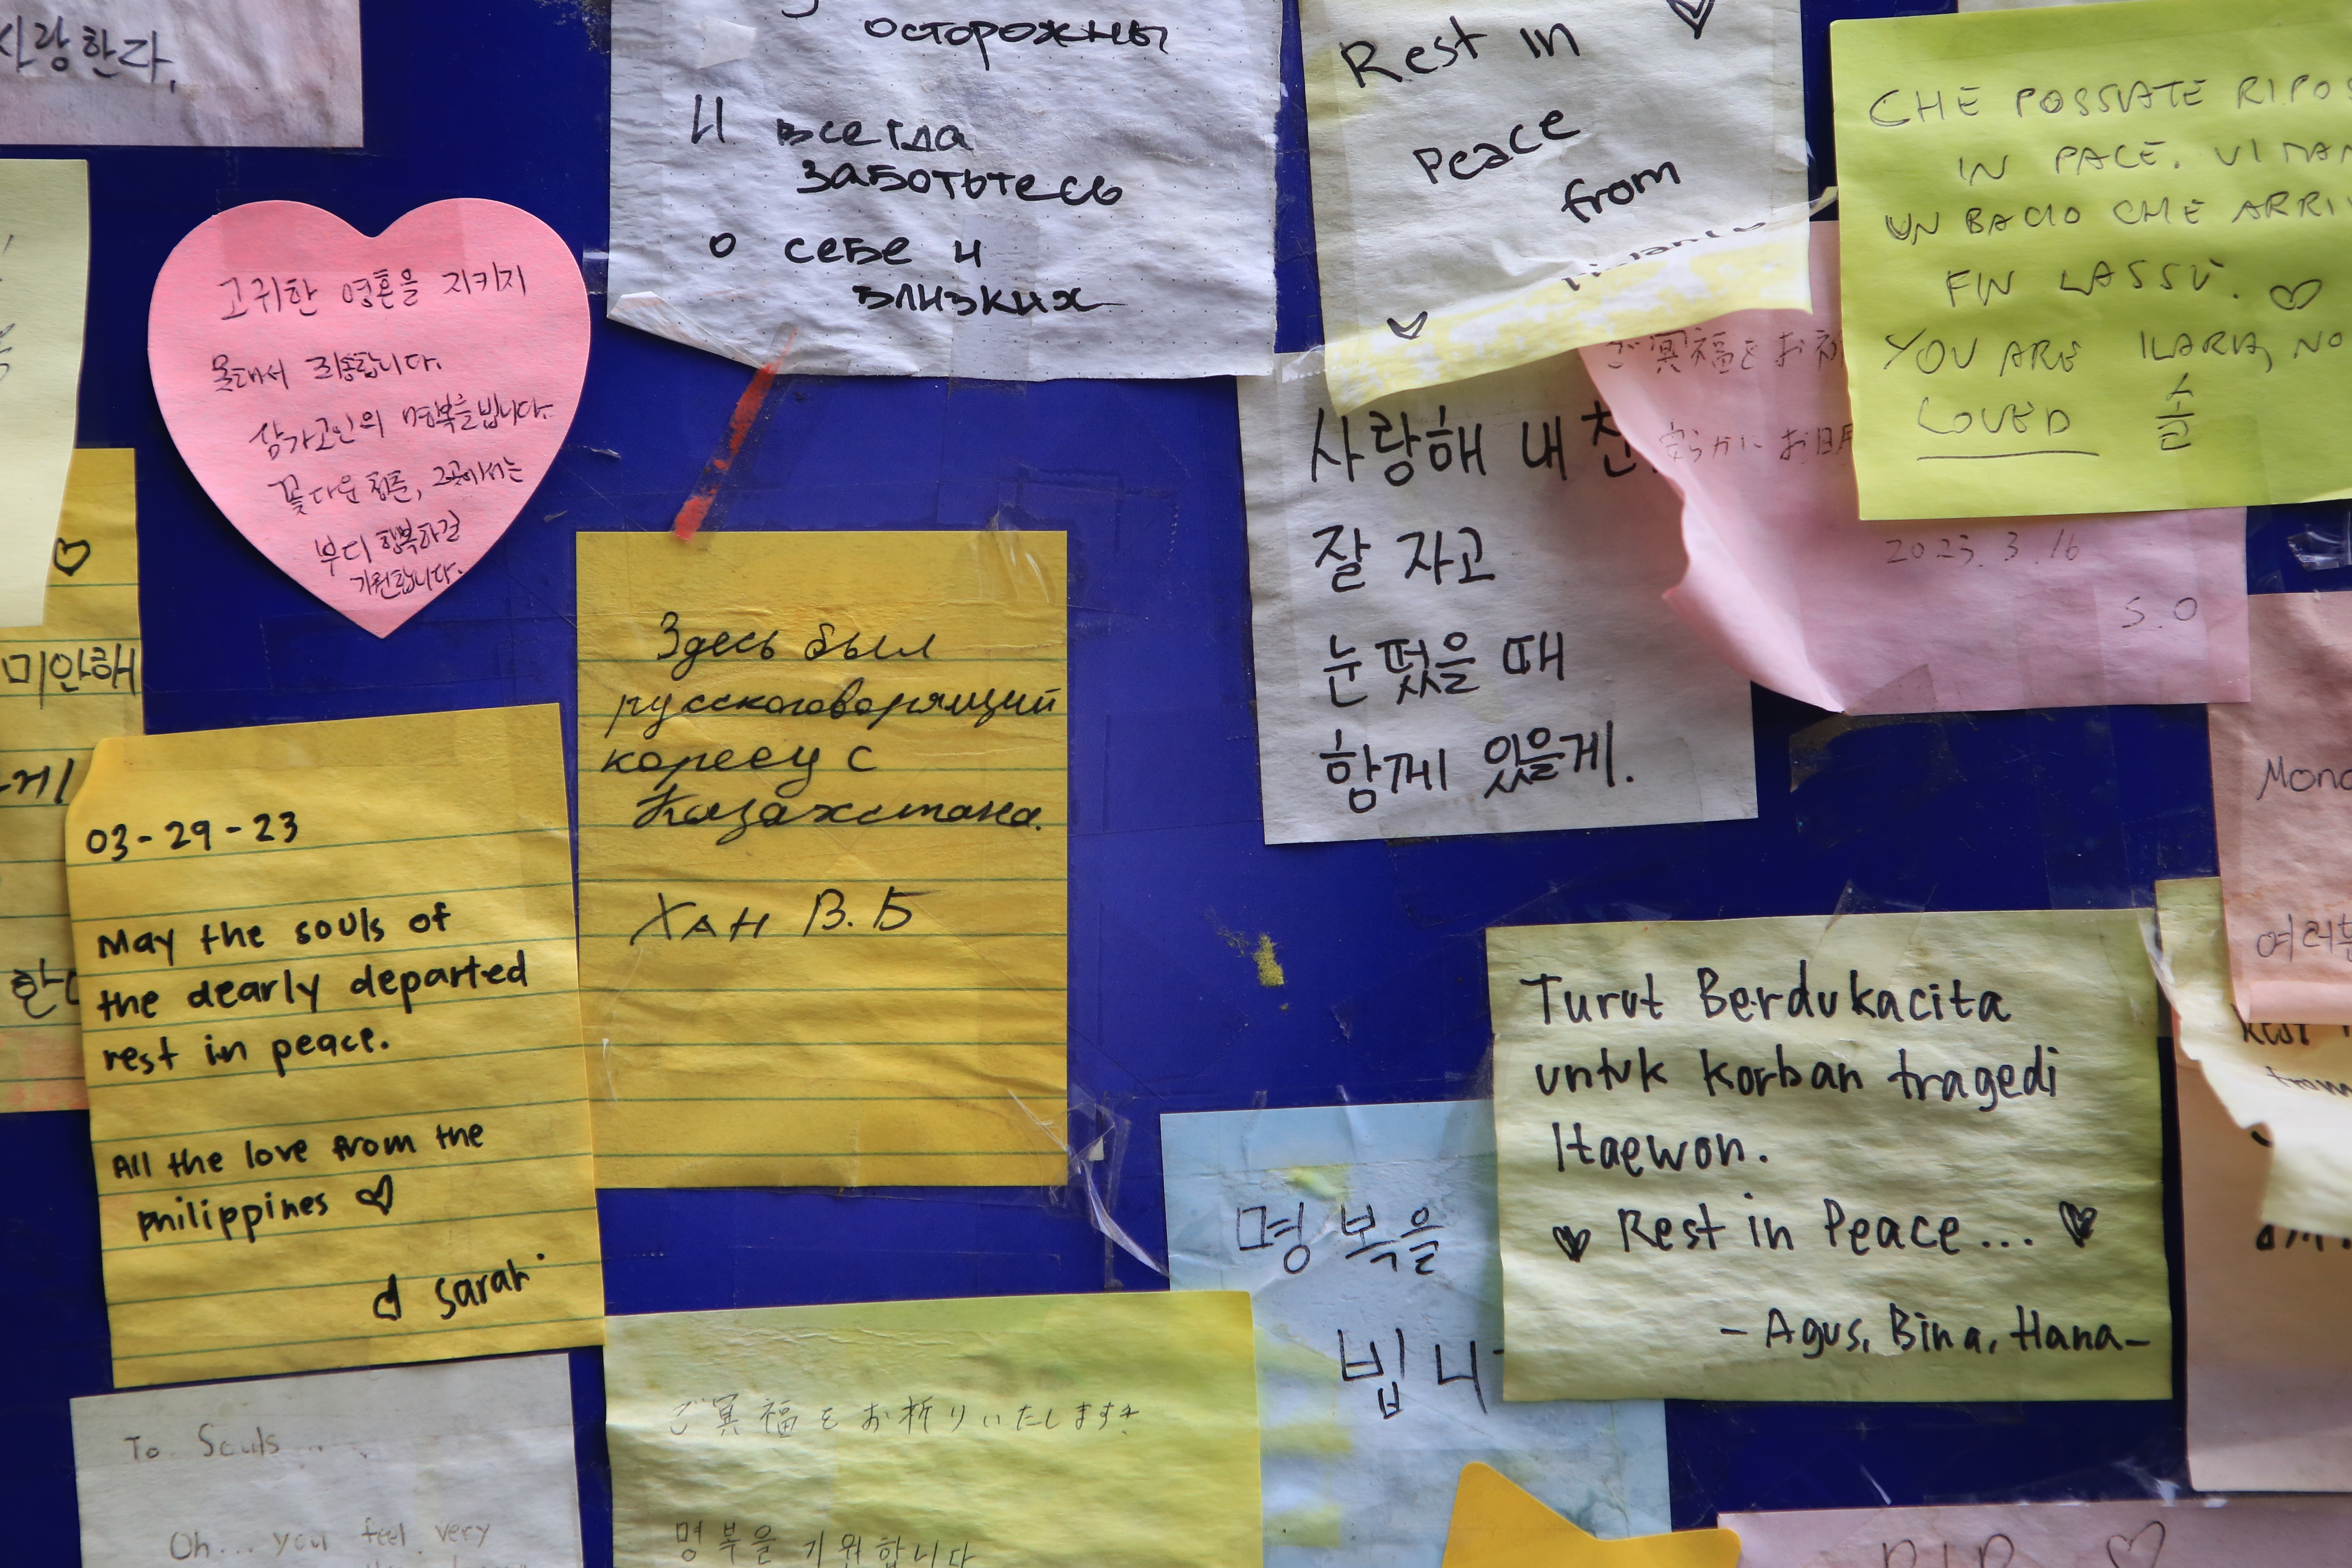 사랑한다,
осторожны
И всегда
заботьтесь
о себе и
близких
Rest in
Peace
from
CHE POSSIATE RIPOS
IN PACE. VI MAN
UN BACIO CHE ARRI
FIN LASSÙ.
YOU ARE
LOVED
ILARIA, NO
고귀한 영혼을 지키지
못해서 죄송합니다.
삼가고인의 명복을빕니다.
꽃다운 청춘, 그곳에서는
부디 행복하길
기원합니다.
ご冥福をお祈
安らかにお眠
2023.3.16
S.O
사랑해 내 친
잘 자고
눈 떴을 때
함께 있을게.
미안해
게
한
03-29-23
May the souls of
the dearly departed
rest in peace.
All the love from the
philippines
sarah
Здесь был
русскоговорящий
кореец с
Казахстана.
Хан В.Б
Turut Berdukacita
untuk korban tragedi
Itaewon.
Rest in Peace...
- Agus, Bina, Hana-
명복을
빕니
Mong
여러분
Rest
To. Souls...
Oh... you feel very
ご冥福をお祈りいたします
명복을 기원합니다
R.I.P